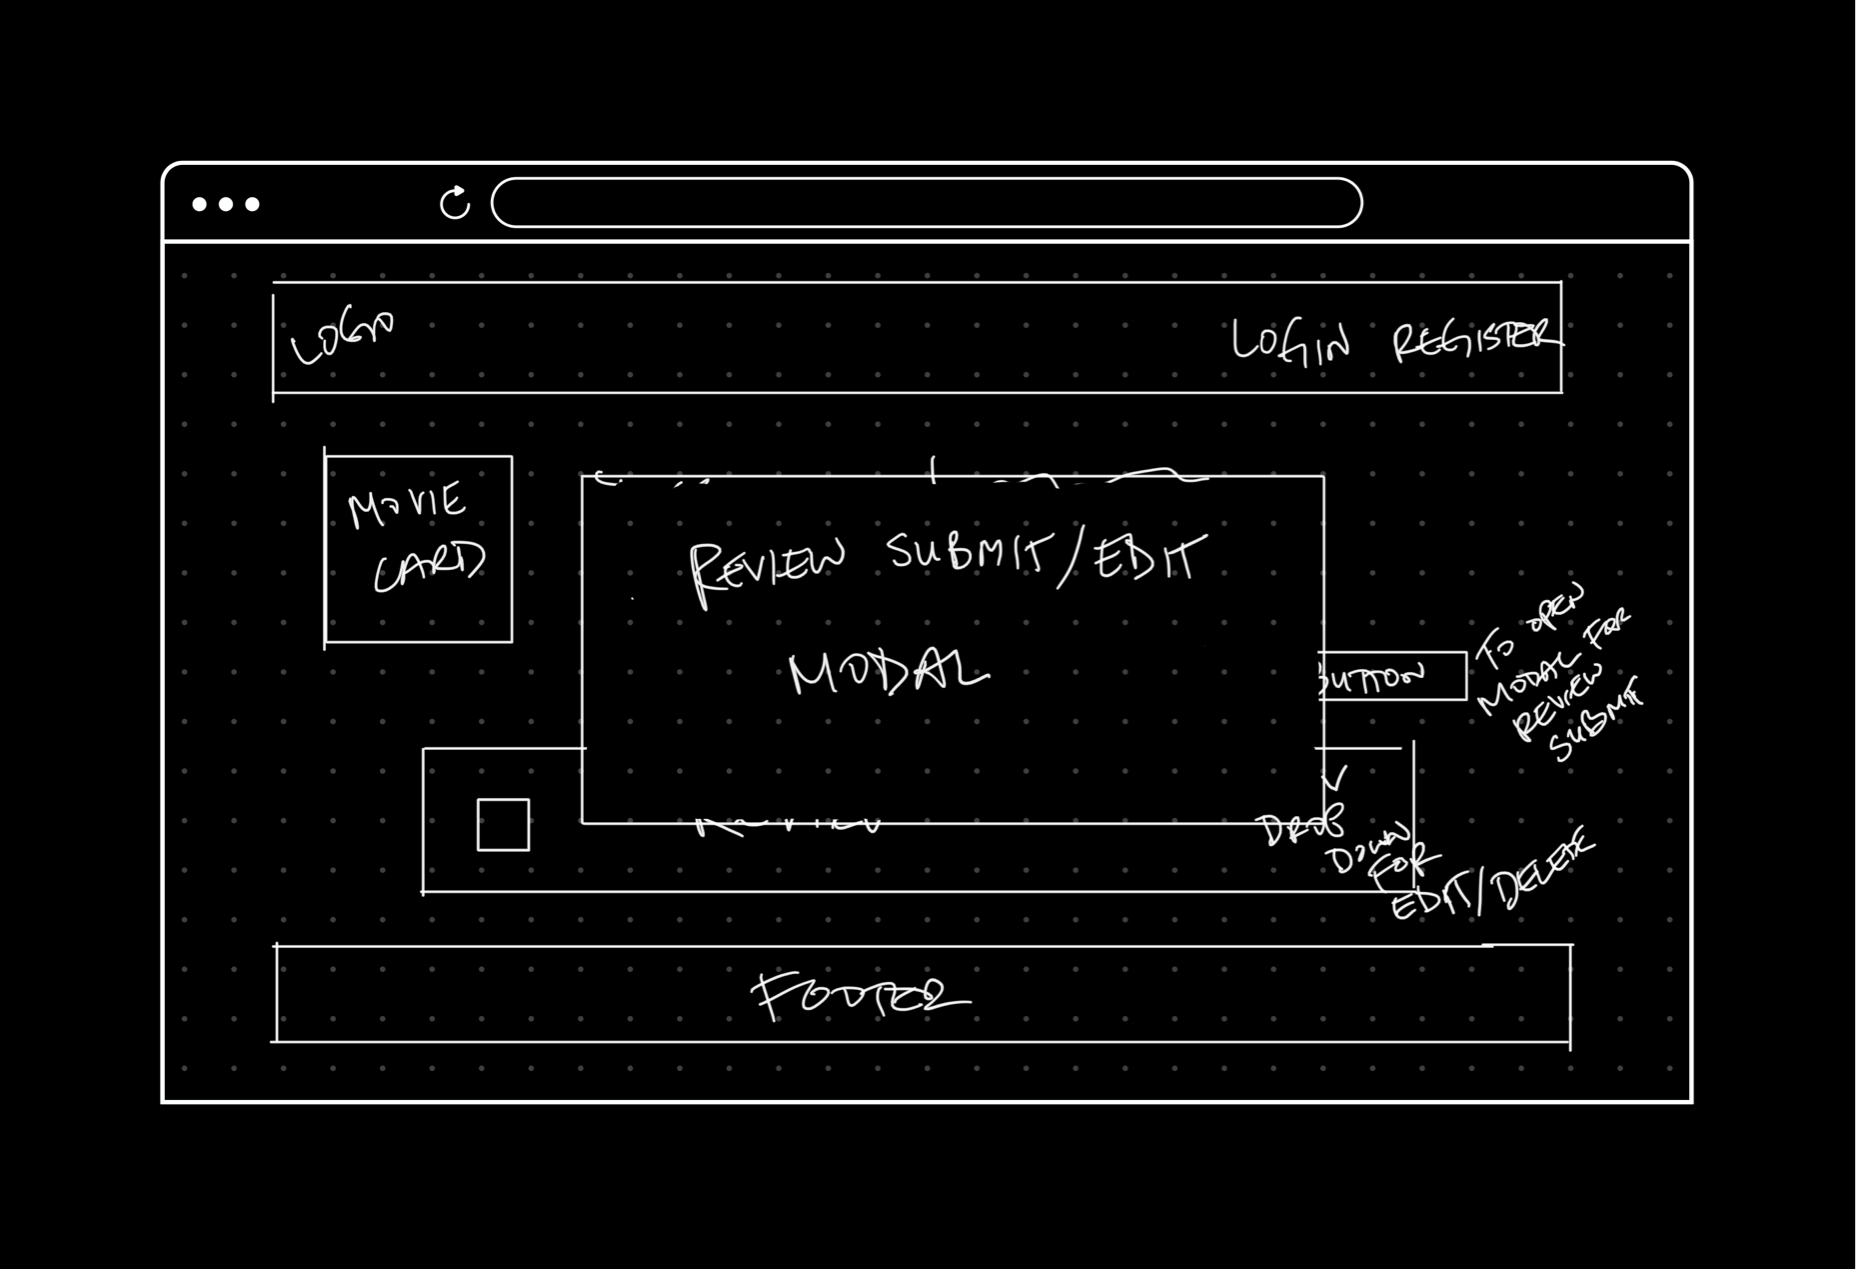 LOGO
LOGIN REGISTER
MOVIE
CARD
REVIEW SUBMIT/EDIT
MODAL
BUTTON
TO OPEN
MODAL FOR
REVIEW
SUBMIT
DROP
DOWN
FOR
EDIT/DELETE
FOOTER